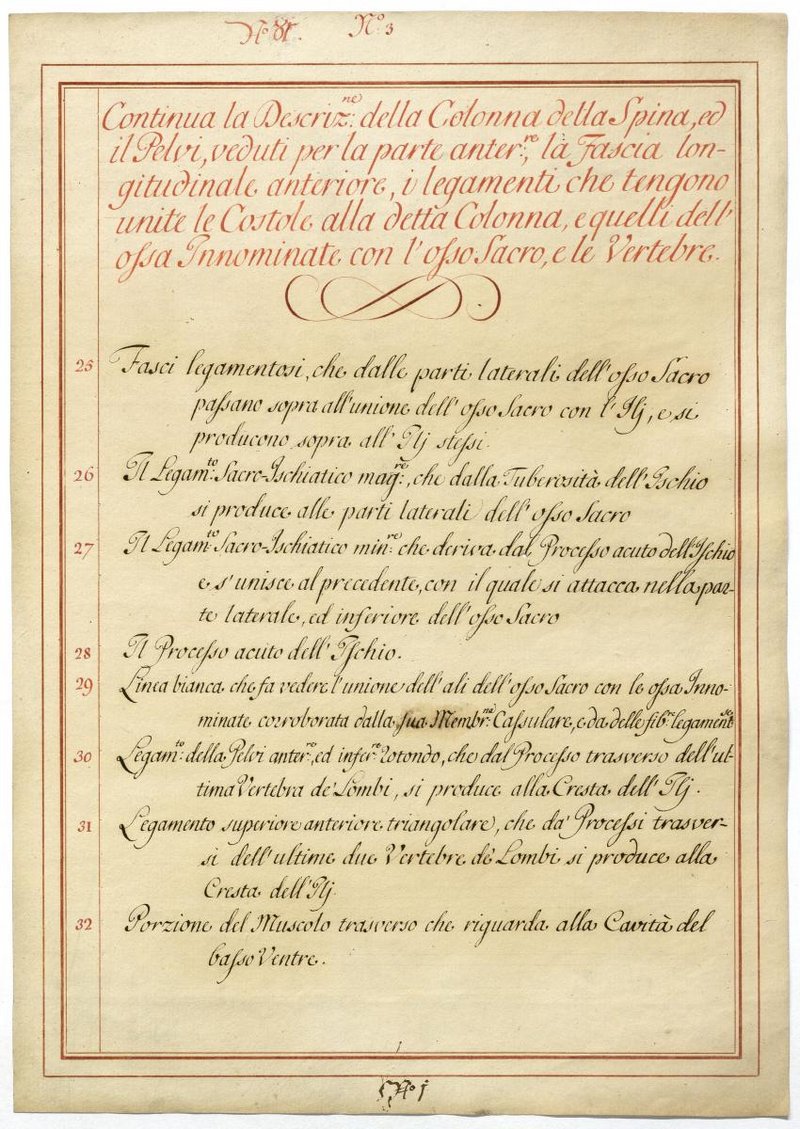 Nº 81. Nº 3
Continua la Descriz.ne della Colonna della Spina, ed
il Pelvi, veduti per la parte anter.re, la Fascia lon-
gitudinale anteriore, i legamenti che tengono
unite le Costole alla detta Colonna, e quelli dell'
ossa Innominate con l'osso Sacro, e le Vertebre.
25 Fasci legamentosi, che dalle parti laterali dell'osso Sacro
passano sopra all'unione dell'osso Sacro con l'Ilj, e si
producono sopra all'Ilj stessi.
26 Il Legam.to Sacro-Ischiatico mag.re, che dalla Tuberosità dell'Ischio
si produce alle parti laterali dell'osso Sacro
27 Il Legam.to Sacro-Ischiatico min.re che deriva dal Processo acuto dell'Ischio
e s'unisce al precedente, con il quale si attacca nella par-
te laterale, ed inferiore dell'osso Sacro
28 Il Processo acuto dell'Ischio.
29 Linea bianca che fa vedere l'unione dell'ali dell'osso Sacro con le ossa Inno-
minate corroborata dalla sua Membr.na Cassulare, e da delle fib.e legament.se
30 Legam.to della Pelvi anter.re, ed infer.re rotondo, che dal Processo trasverso dell'ul-
tima Vertebra de' Lombi, si produce alla Cresta dell'Ilj.
31 Legamento superiore anteriore triangolare, che da' Processi trasver-
si dell'ultime due Vertebre de' Lombi si produce alla
Cresta dell'Ilj
32 Porzione del Muscolo trasverso che riguarda alla Cavità del
basso Ventre.
Nº 1